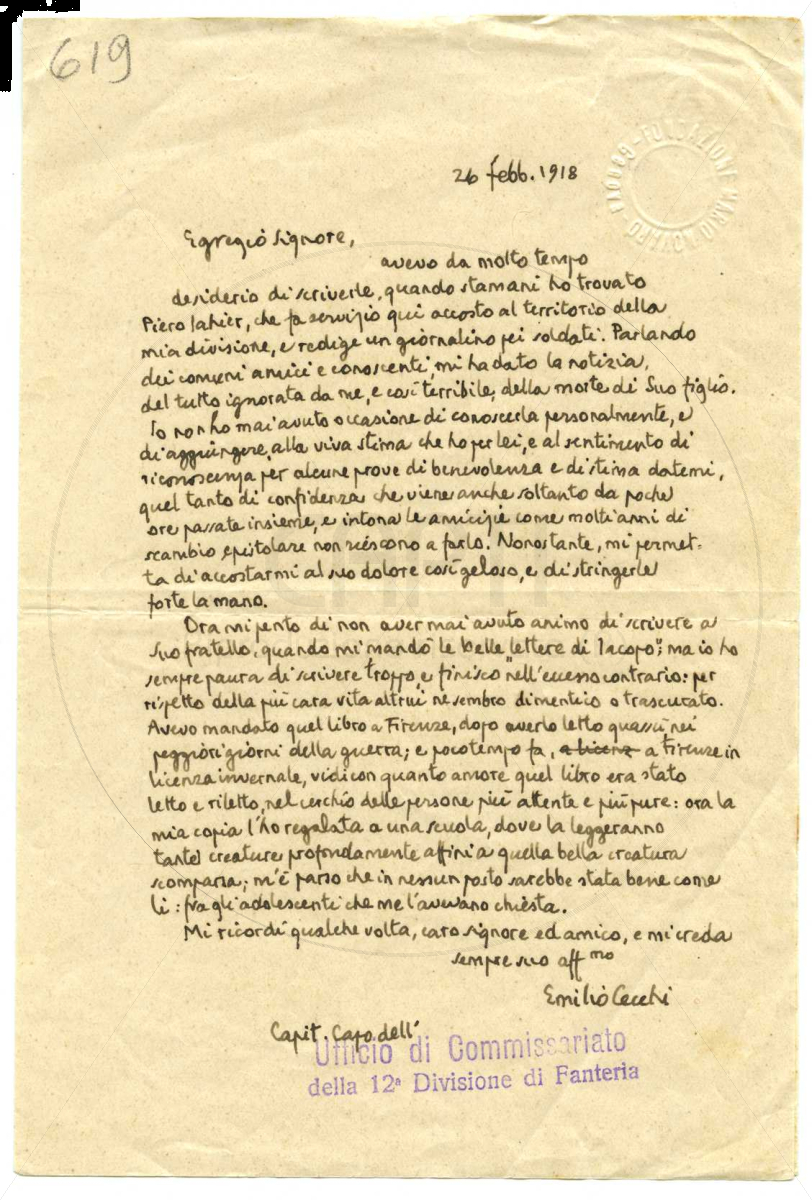 619
FONDAZIONE MARIO NOVARO
26 febb. 1918
Egregio Signore,
avevo da molto tempo
desiderio di scriverle, quando stamani ho trovato
Piero Iahier, che fa servizio qui accosto al territorio della
mia divisione, e redige un giornalino pei soldati. Parlando
dei comuni amici e conoscenti, mi ha dato la notizia,
del tutto ignorata da me, e così terribile, della morte di Suo figlio.
Io non ho mai avuto occasione di conoscerla personalmente, e
di aggiungere, alla viva stima che ho per lei, e al sentimento di
riconoscenza per alcune prove di benevolenza e di stima datemi,
quel tanto di confidenza che viene anche soltanto da poche
ore passate insieme, e intona le amicizie come molti anni di
scambio epistolare non riescono a farlo. Nonostante, mi permet-
ta di accostarmi al suo dolore così geloso, e di stringerle
forte la mano.
Ora mi pento di non aver mai avuto animo di scrivere a
suo fratello, quando mi mandò le belle "lettere di Iacopo"; ma io ho
sempre paura di scrivere troppo, e finisco nell'eccesso contrario: per
rispetto della più cara vita altrui ne sembro dimentico o trascurato.
Avevo mandato quel libro a Firenze, dopo averlo letto quassù nei
peggiori giorni della guerra; e poco tempo fa, a licenz a Firenze in
licenza invernale, vidi con quanto amore quel libro era stato
letto e riletto, nel cerchio delle persone più attente e più pure: ora la
mia copia l'ho regalata a una scuola, dove la leggeranno
tante creature profondamente affini a quella bella creatura
scomparsa; m'è parso che in nessun posto sarebbe stata bene come
lì: fra gli adolescenti che me l'avevano chiesta.
Mi ricordi qualche volta, caro signore ed amico, e mi creda
sempre suo aff mo
Emilio Cecchi
Capit. Capo dell'
Ufficio di Commissariato
della 12ª Divisione di Fanteria